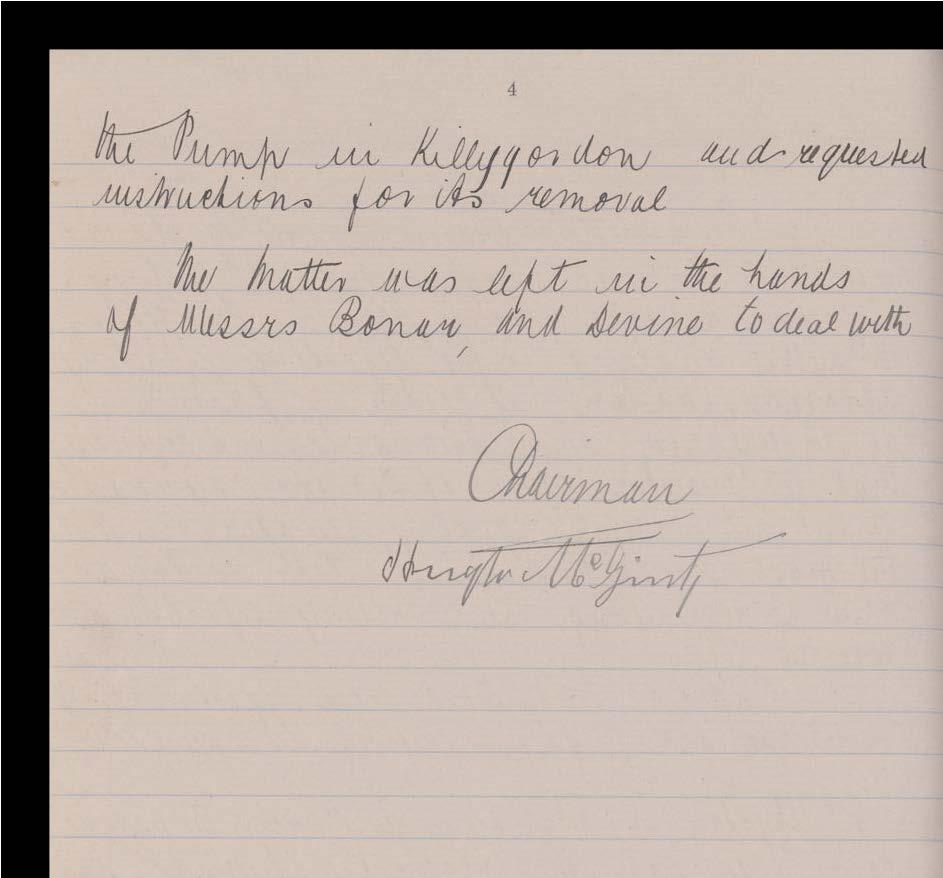 4
the Pump in Killygordon and requested
instructions for its removal
The matter was left in the hands
of Messrs Bonar, and Devine to deal with
Chairman
Hugh McGinty